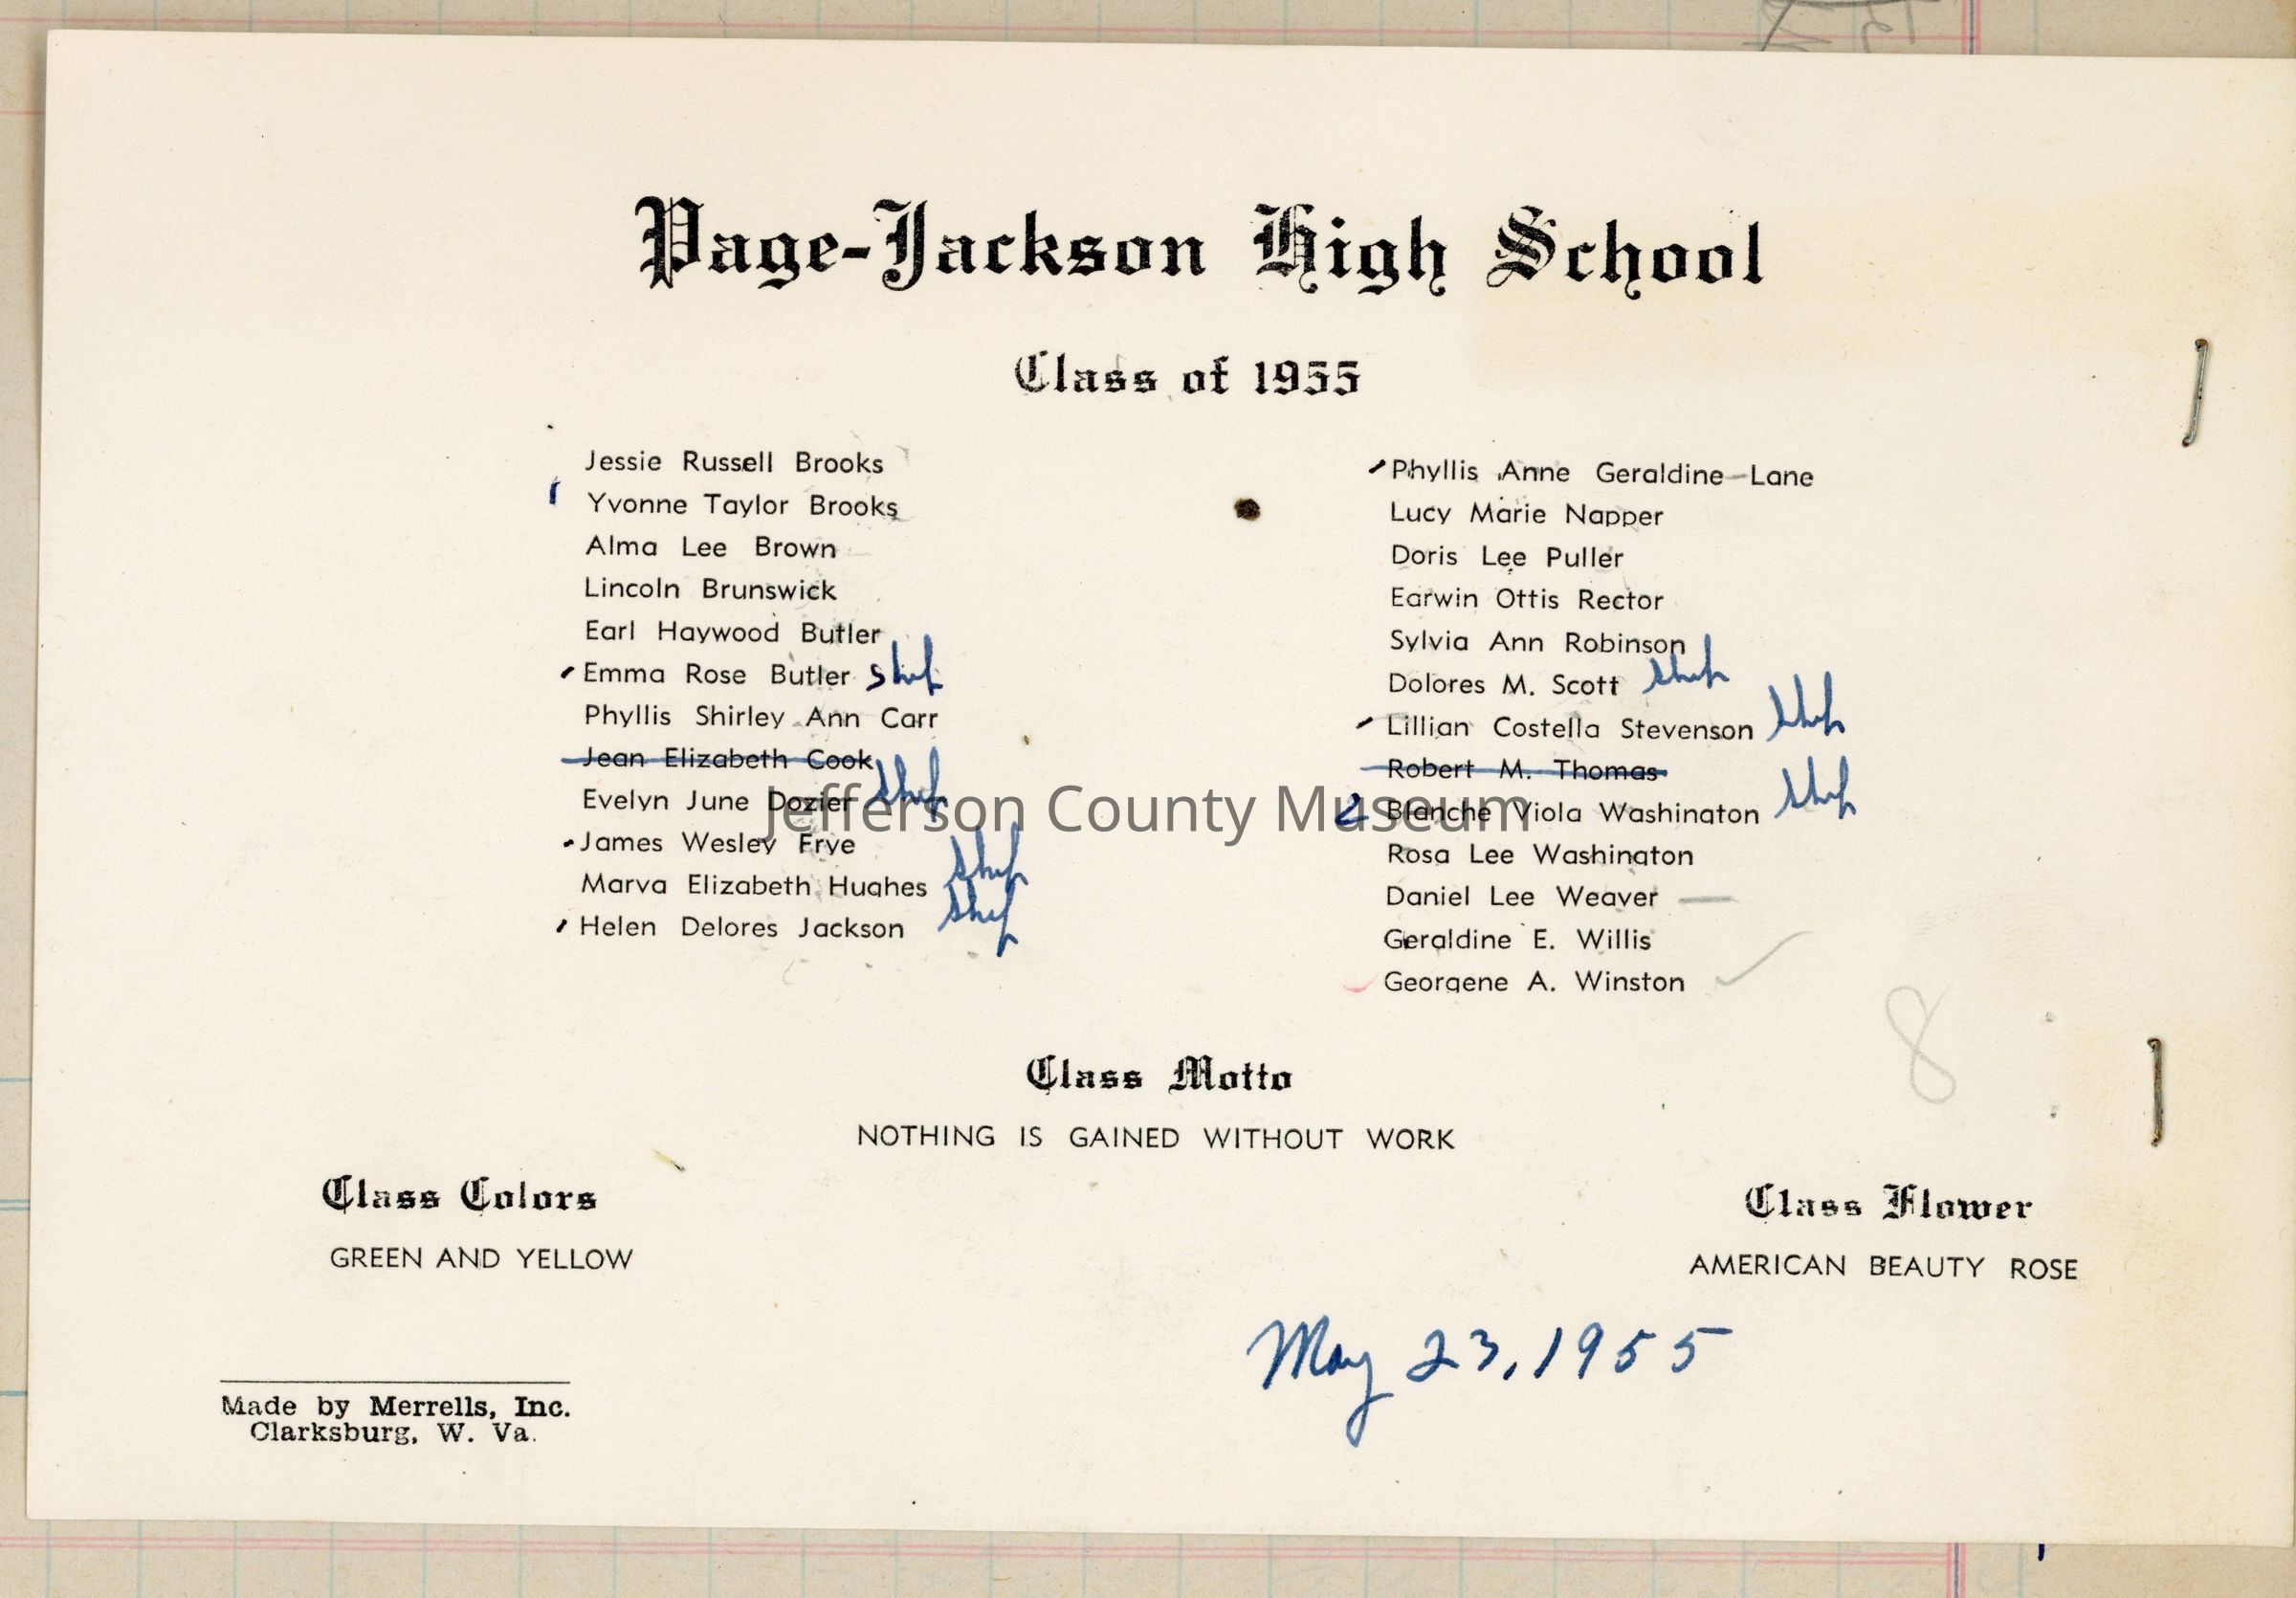 Page-Jackson High School
Class of 1955
Jessie Russell Brooks
1 Yvonne Taylor Brooks
Alma Lee Brown
Lincoln Brunswick
Earl Haywood Butler
Emma Rose Butler Shep
Phyllis Shirley Ann Carr
Jean Elizabeth Cook
Evelyn June Dozier Shep
James Wesley Frye
Marva Elizabeth Hughes Shep
Helen Delores Jackson Shep
Phyllis Anne Geraldine Lane
Lucy Marie Napper
Doris Lee Puller
Earwin Ottis Rector
Sylvia Ann Robinson
Dolores M. Scott Shep
Lillian Costella Stevenson Shep
Robert M. Thomas
2 Blanche Viola Washington Shep
Rosa Lee Washington
Daniel Lee Weaver
Geraldine E. Willis
Georgene A. Winston
8
Jefferson County Museum
Class Motto
NOTHING IS GAINED WITHOUT WORK
Class Colors
GREEN AND YELLOW
Class Flower
AMERICAN BEAUTY ROSE
May 23, 1955
Made by Merrells, Inc.
Clarksburg, W. Va.